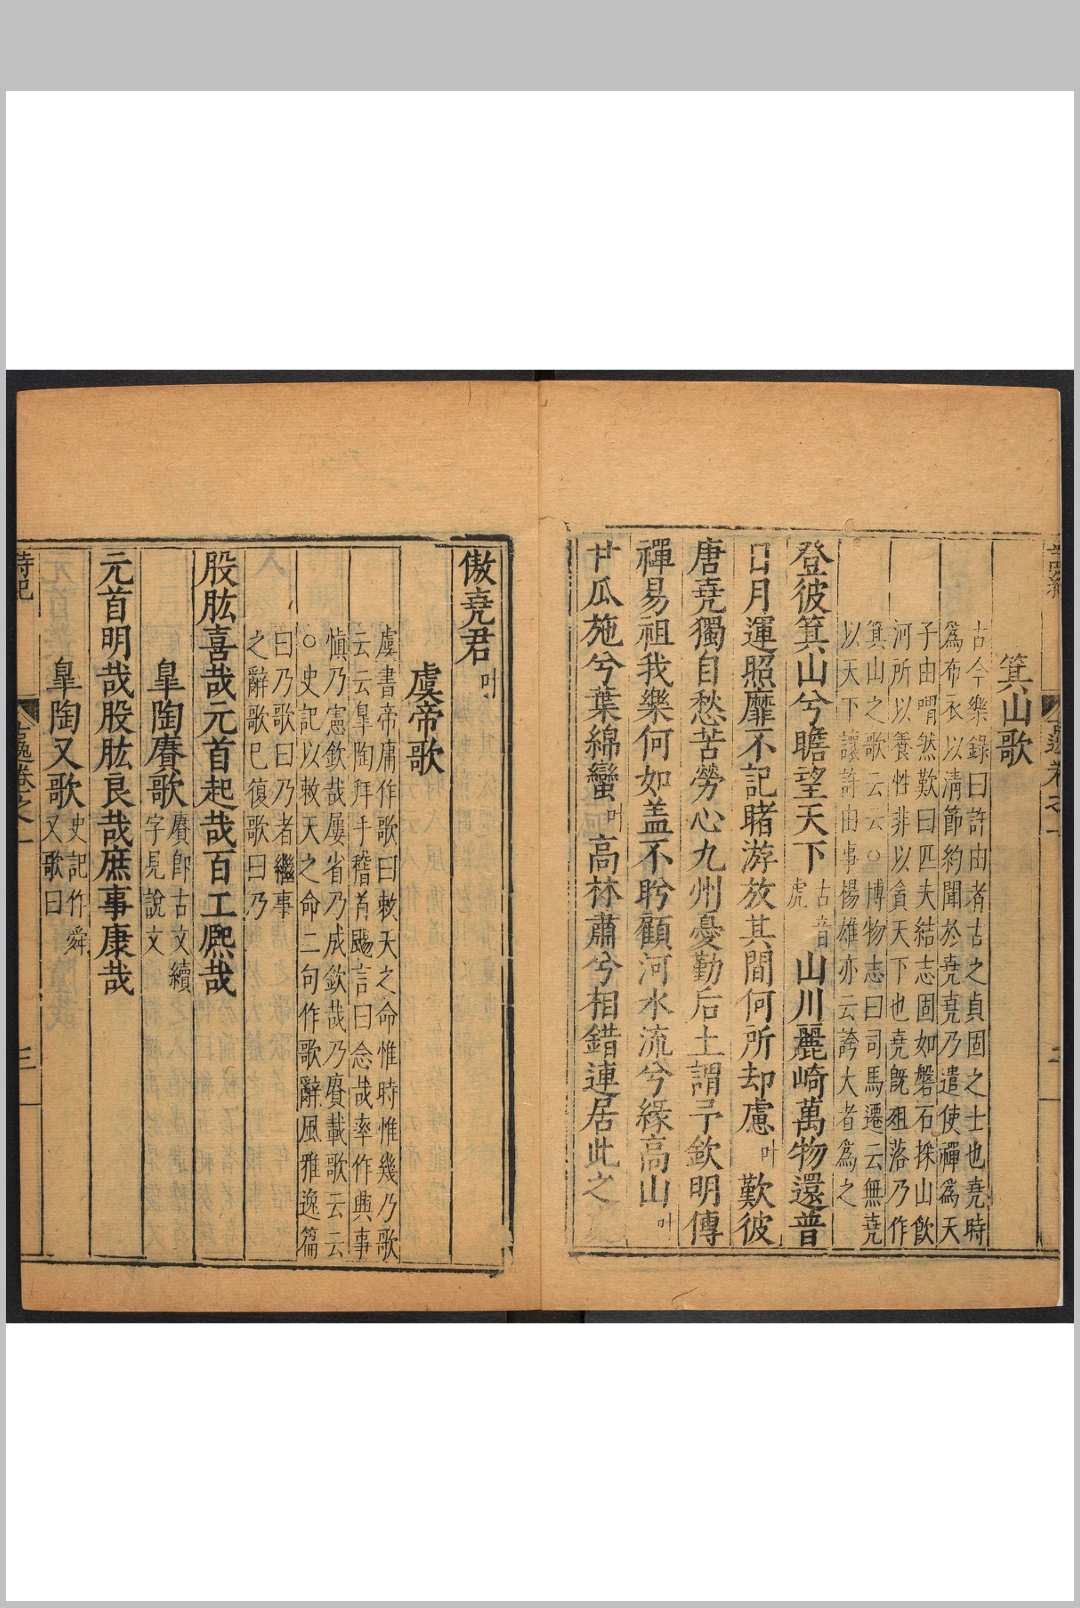 箕山歌
古今樂錄曰許由者古之貞固之士也堯時
爲布衣以清節約聞於堯堯乃遣使禪爲天
子由喟然歎曰匹夫結志固如磐石採山飲
河所以養性非以貪天下也堯旣殂落乃作
箕山之歌云云○博物志曰司馬遷云無堯
以天下讓許由事楊雄亦云誇大者爲之
登彼箕山兮瞻望天下古音虎山川麗崎萬物還普
日月運照靡不記睹游放其間何所却慮叶歎彼
唐堯獨自愁苦勞心九州憂勤后土謂予欽明傳
禪易祖我樂何如盖不盻顧河水流兮緣高山叶
甘瓜施兮葉綿蠻叶高林肅兮相錯連居此之
傲堯君叶
虞帝歌
虞書帝庸作歌曰敕天之命惟時惟幾乃歌
云云皐陶拜手稽首颺言曰念哉率作興事
愼乃憲欽哉屢省乃成欽哉乃賡載歌云云
○史記以敕天之命二句作歌辭風雅逸篇
曰乃歌曰乃者繼事
之辭歌巳復歌曰乃
股肱喜哉元首起哉百工熈哉
皐陶賡歌賡卽古文續
字見說文
元首明哉股肱良哉庶事康哉
皐陶又歌史記作舜
又歌曰
詩紀
古逸卷之一
三